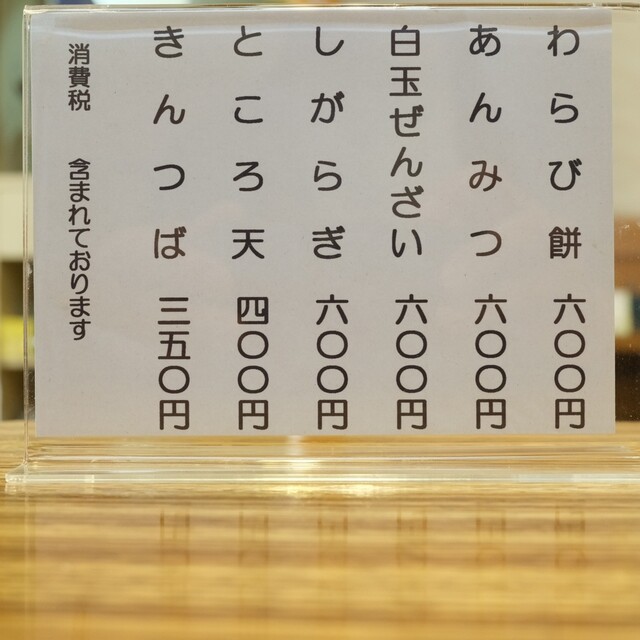 わらび餅 六〇〇円
あんみつ 六〇〇円
白玉ぜんざい 六〇〇円
しがらぎ 六〇〇円
ところ天 四〇〇円
きんつば 三五〇円
消費税 含まれております